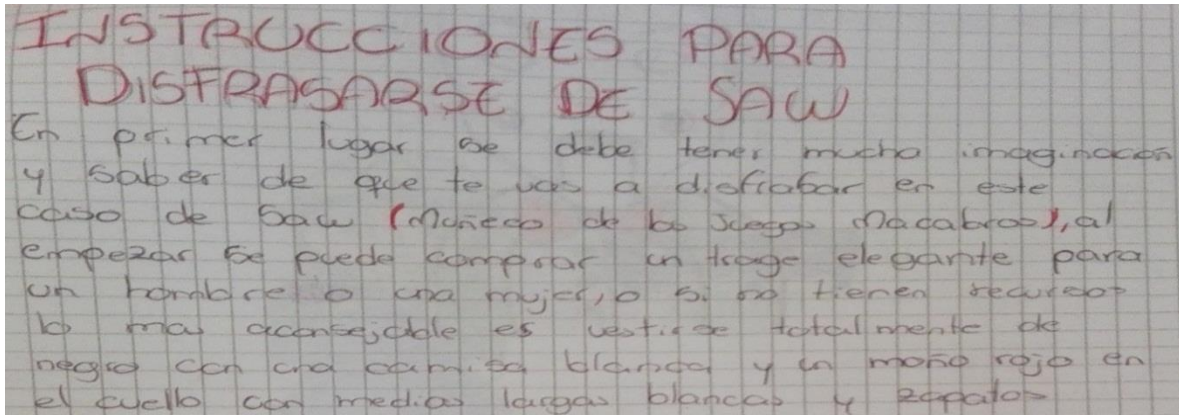 INSTRUCCIONES PARA
DISFRASARSE DE SAW
En primer lugar se debe tener mucha imaginacion
y saber de que te vas a disfrasar en este
caso de Saw (Muñeco de los Juegos Macabros), al
empezar se puede comprar un trage elegante para
un hombre o una mujer, o si no tienen recursos
lo mas aconsejable es vestirse totalmente de
negro con una camisa blanca y un moño rojo en
el cuello con medias largas blancas y zapatos